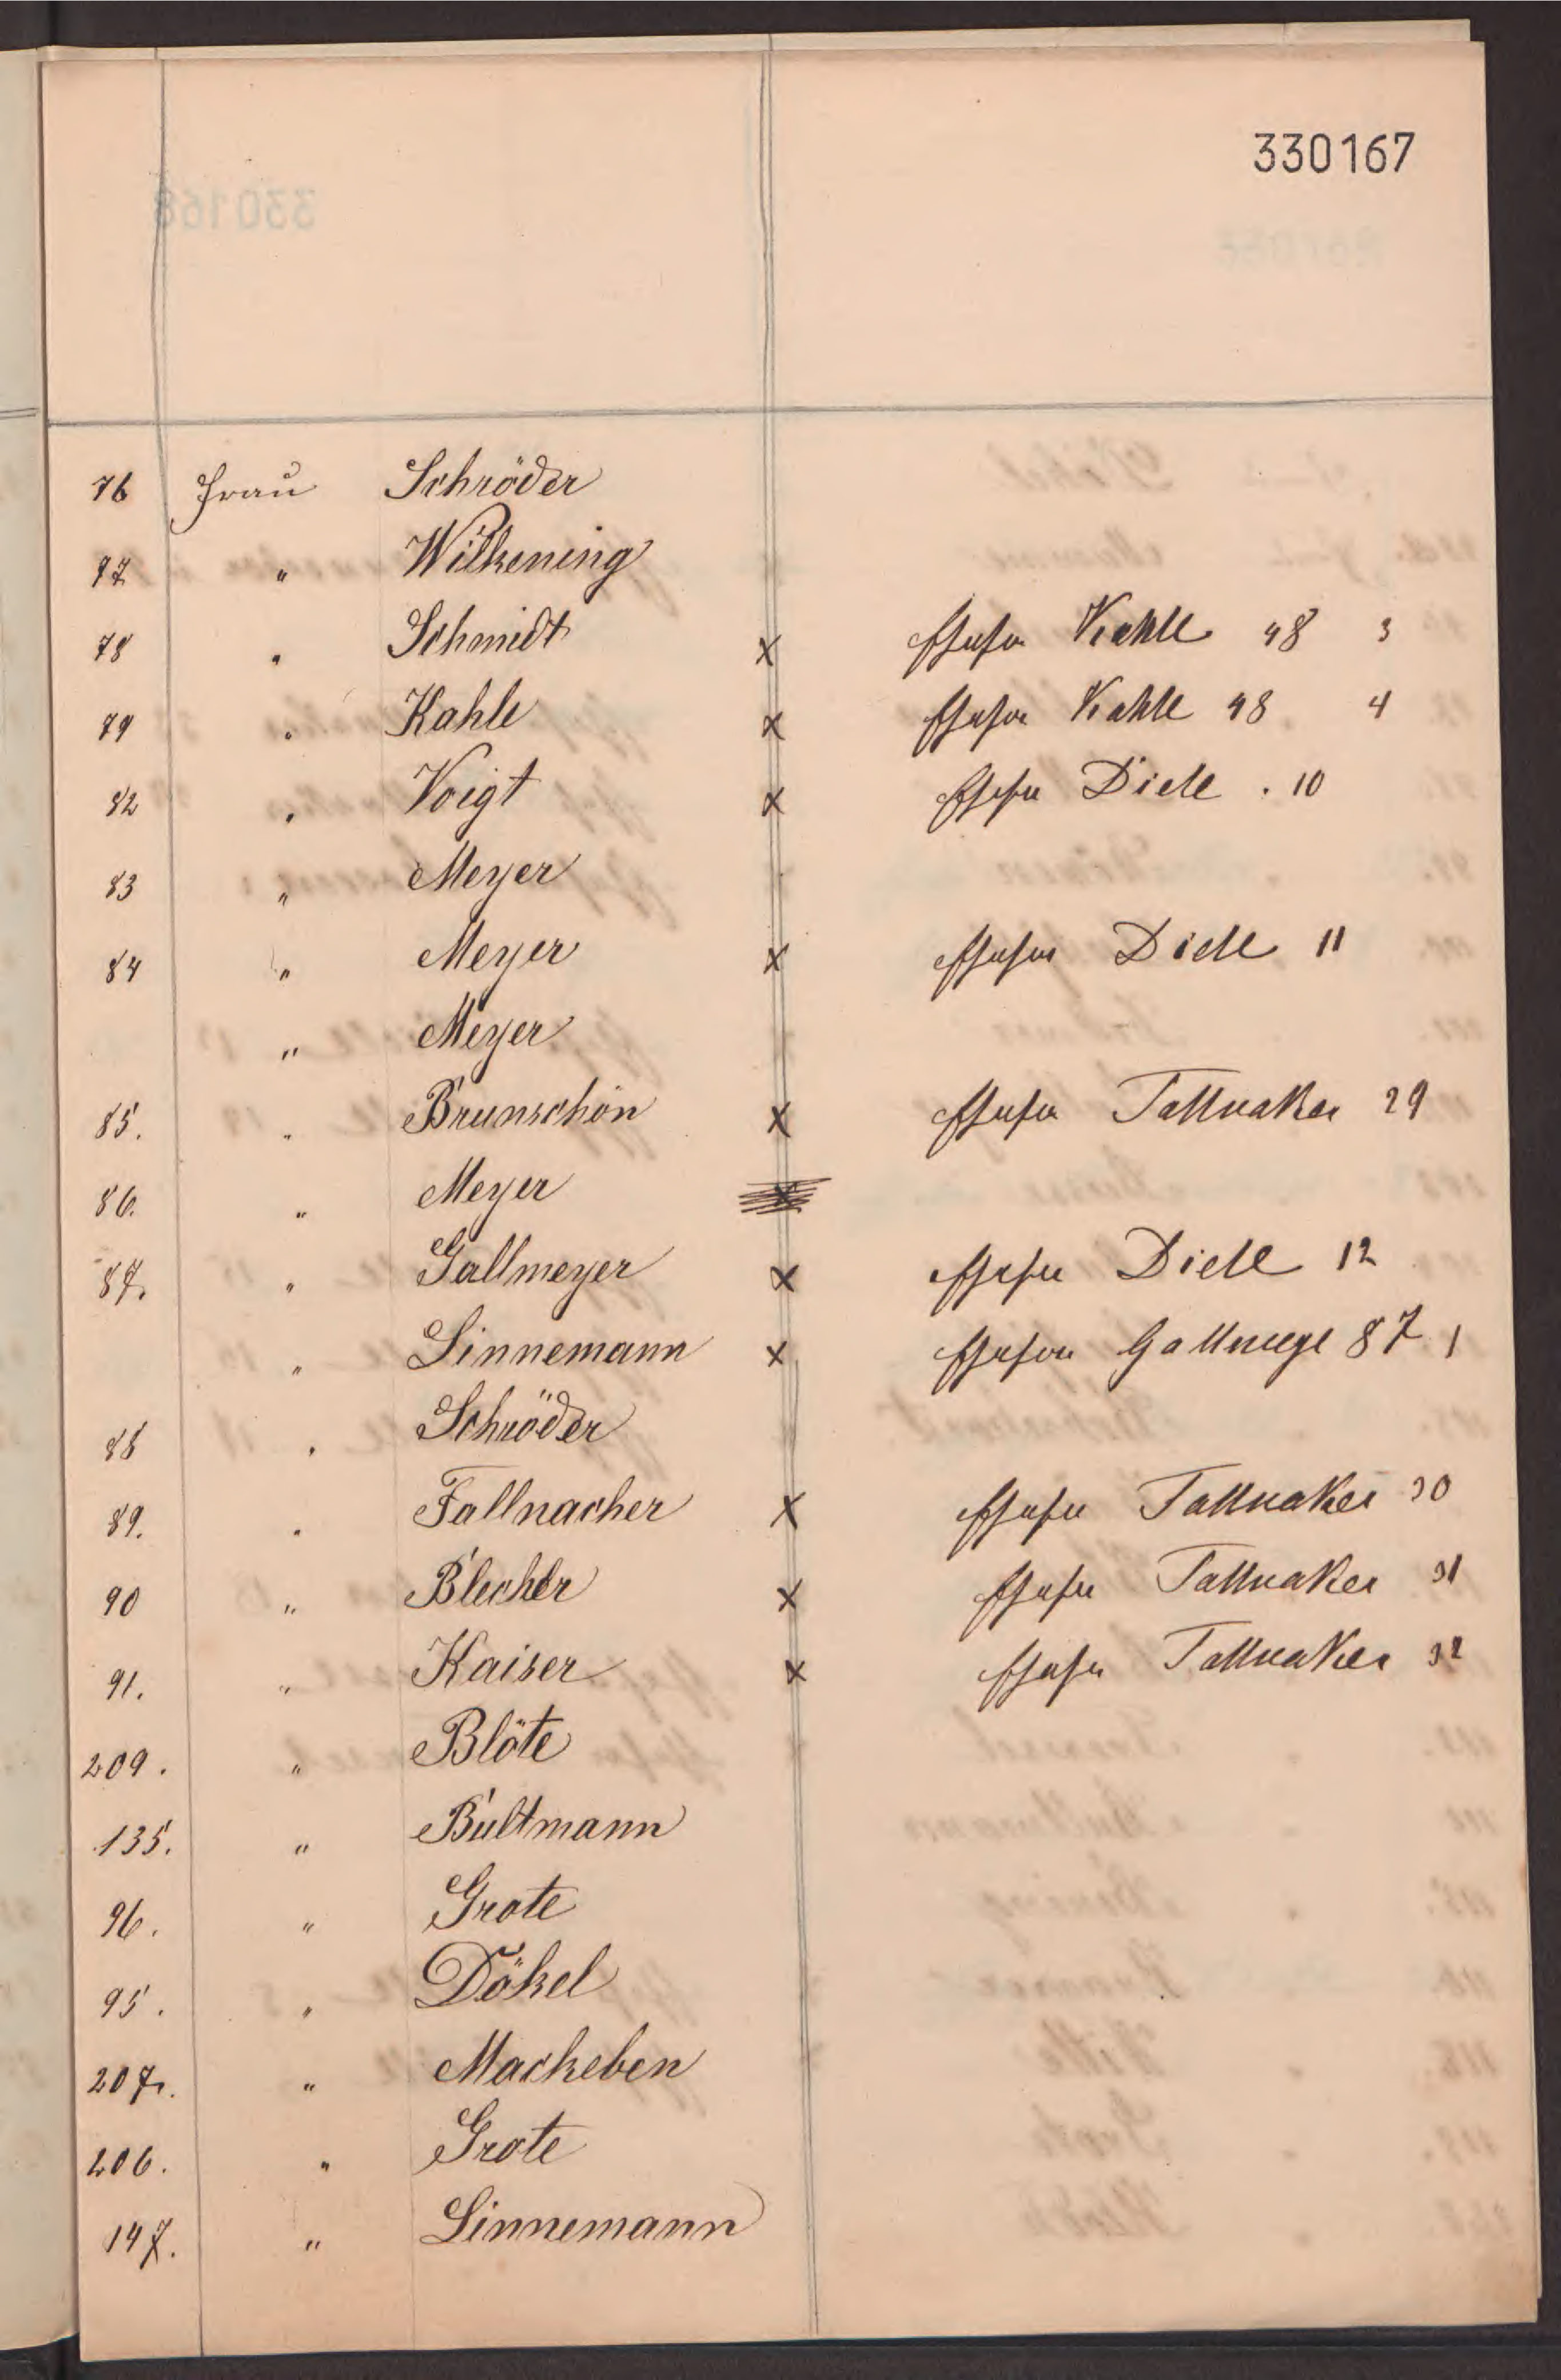 330167
76 Frau Schröder
77 " Wilkening
78 " Schmidt x Kahle 48 3
79 " Kahle x Kahle 48 4
82 " Voigt x Diele . 10
83 " Meyer
84 " Meyer x Diele 11
" Meyer
85. " Brunschön x Tallnaker 29
86. " Meyer
87. " Gallmeyer x Diele 12
" Linnemann x 87 1
88 " Schröder
89. " Fallnacher x Tallnaker 30
90 " Blecher x Tallnaker 31
91. " Kaiser x Tallnaker 32
209. " Blöte
135. " Bultmann
96. " Grote
95. " Dökel
207. " Mackeben
206. " Grote
147. " Linnemann